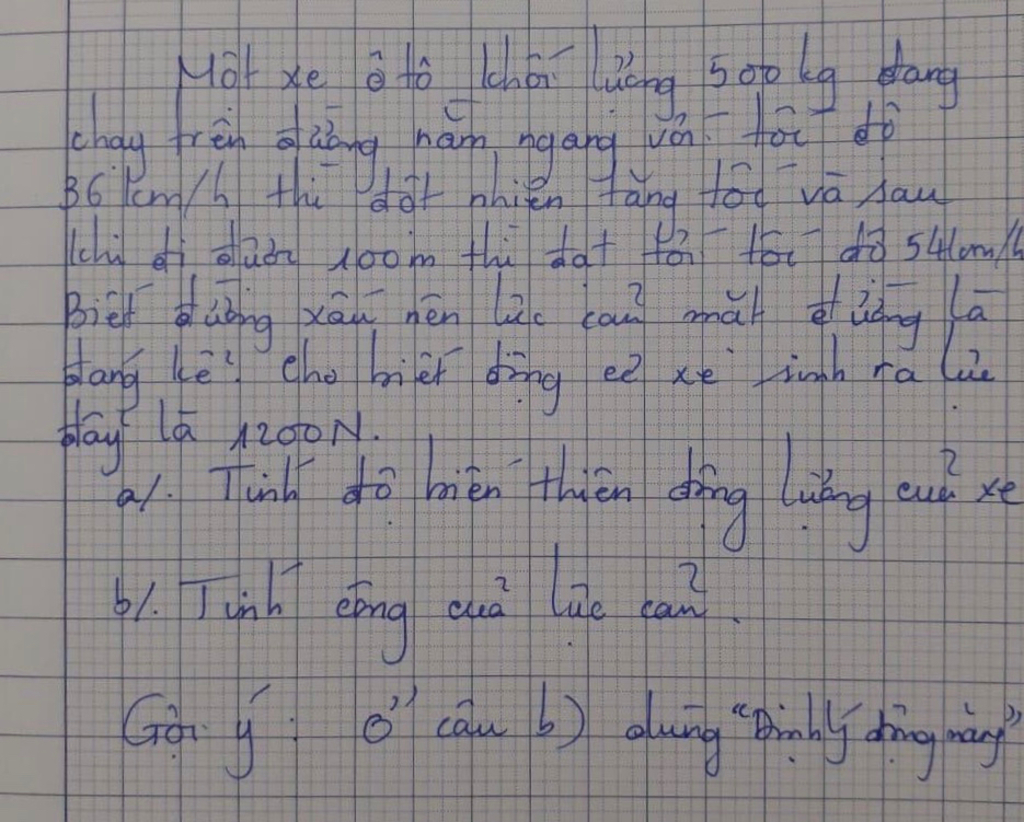 Một xe ô tô khối lượng 500 kg đang
chạy trên đường nằm ngang với tốc độ
36 km/h thì đột nhiên tăng tốc và sau
khi đi được 100m thì đạt tới tốc độ 54km/h
Biết đường xấu nên lực cản mặt đường là
đáng kể. Cho biết động cơ xe sinh ra lực
đẩy là 1200N.
a/. Tính độ biến thiên động lượng của xe
b/. Tính công của lực cản.
Gợi ý: Ở câu b) dùng "Định lý động năng"